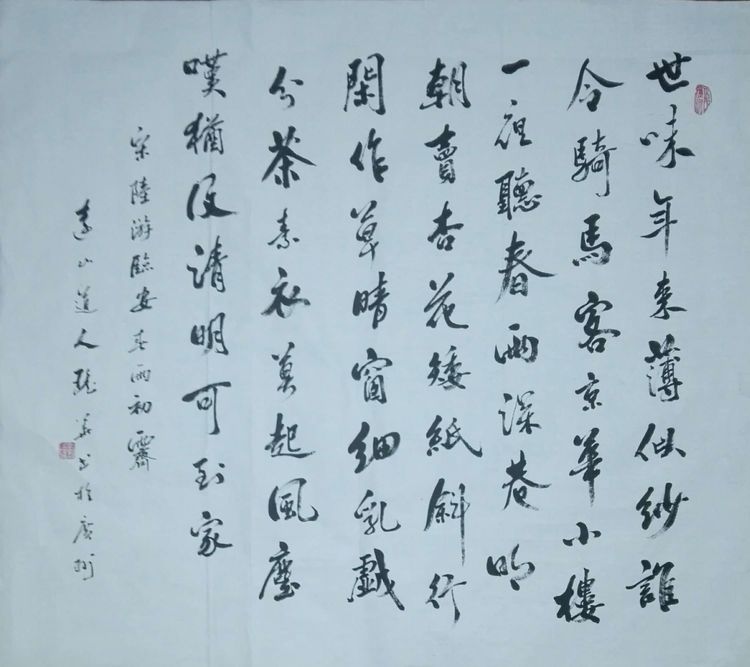 世味年来薄似紗誰
令騎馬客京華小樓
一夜聽春雨深巷明
朝賣杏花矮紙斜行
閑作草晴窗細乳戲
分茶素衣莫起風塵
嘆猶及清明可到家
宋陸游臨安春雨初霽
山道人书於广州